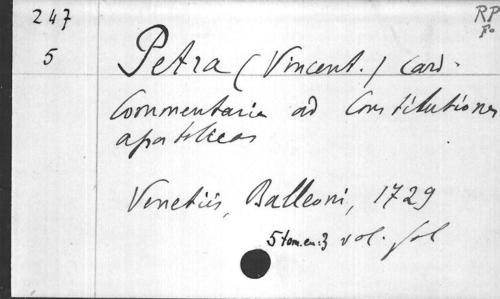 247
5
RP
fo
Petra (Vincent.) card.
Commentaria ad Constitutiones
apostolicas
Venetiis, Balleoni, 1729
5 tom. en: 3 vol. fol